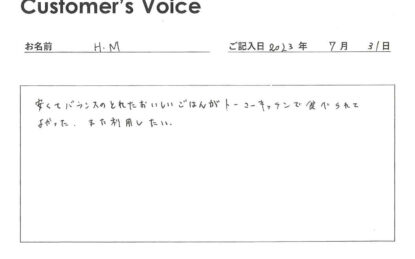 Customer's Voice
お名前 H.M ご記入日 2023年 7月 31日
安くてバランスのとれたおいしいごはんがトーコーキッチンで食べられて
よかった。また利用したい。